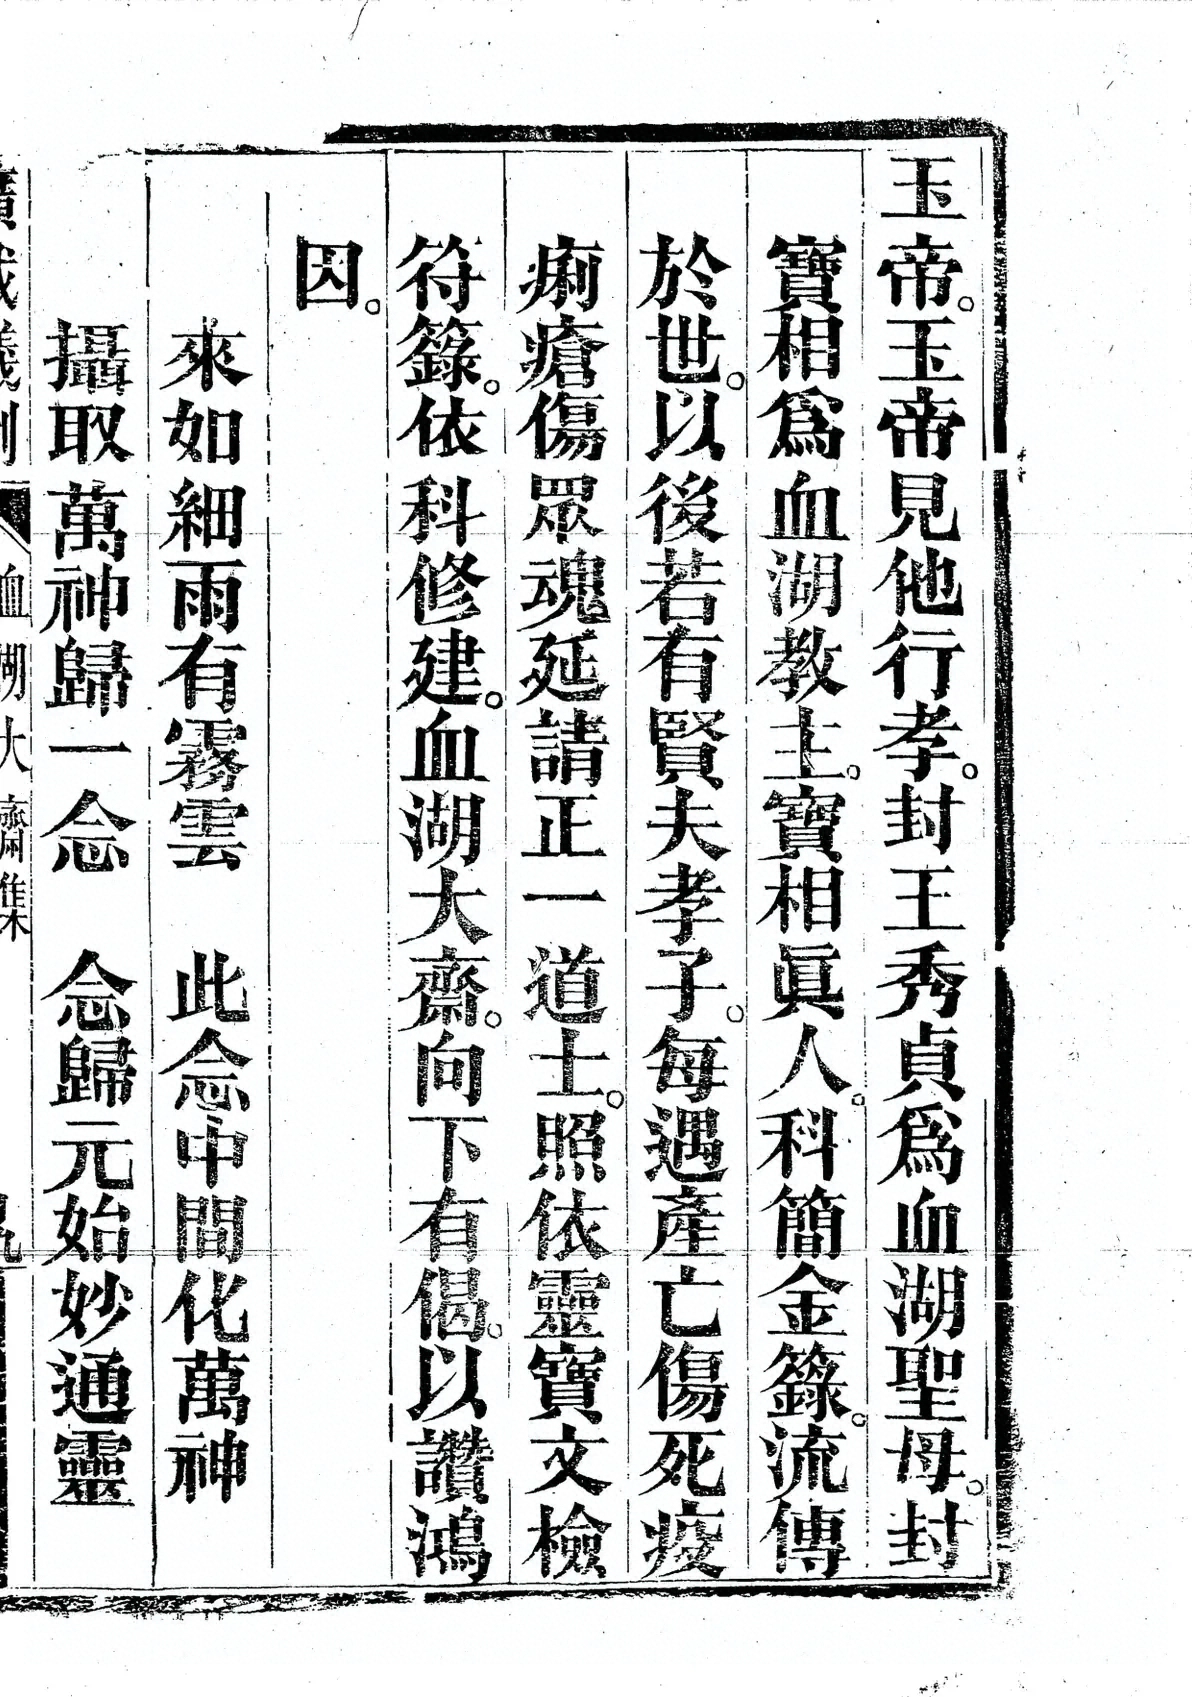 玉帝。玉帝見他行孝。封王秀貞爲血湖聖母。封
寶相爲血湖教主。寶相眞人。科簡金籙。流傳
於世。以後若有賢夫孝子。每遇產亡傷死疫
痢瘡傷眾魂延請正一道士。照依靈寶文檢
符籙。依科修建。血湖大齋。向下有偈。以讚鴻
因。
來如細雨有霧雲　此念中間化萬神
攝取萬神歸一念　念歸元始妙通靈
廣成儀制　血湖大齋集　九